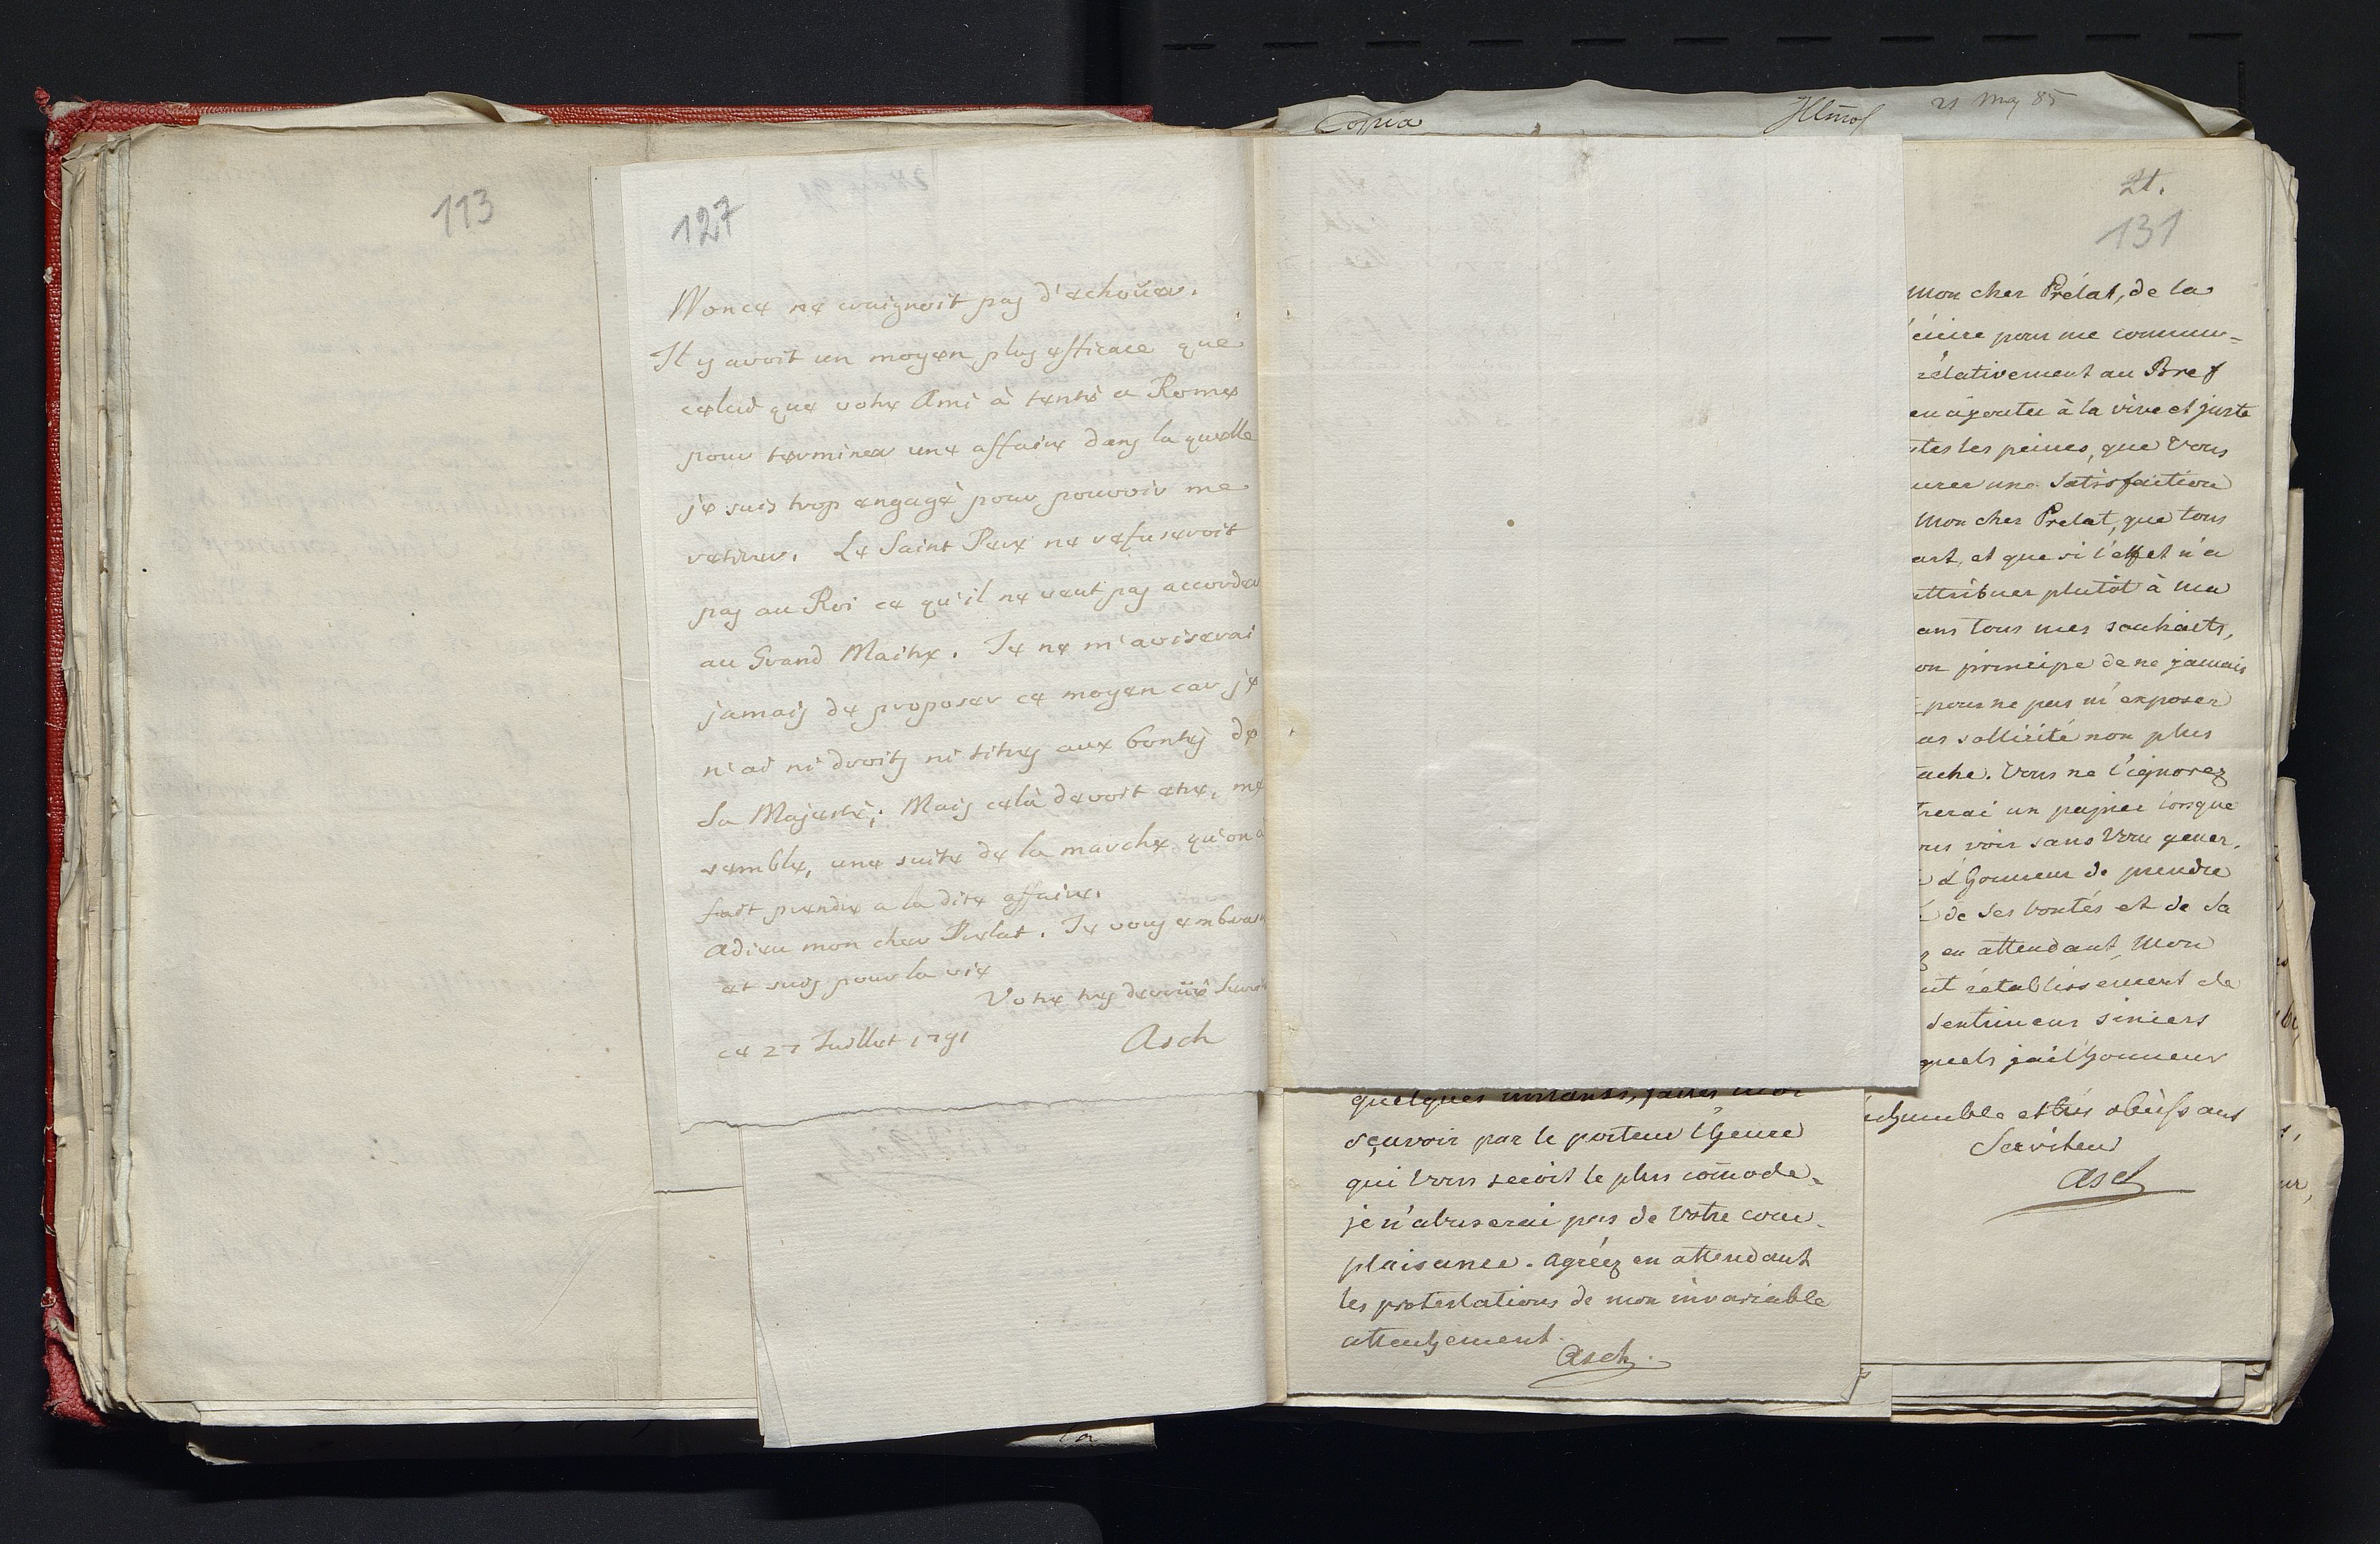 113
127
Nonce ne craignoit pas d'echoüer.
Il y avoit un moyen plus efficace que
celui que votre Ami à tenté a Rome
pour terminer une affaire dans la quelle
je suis trop engagé pour pouvoir me
retirer. Le Saint Pere ne refuseroit
pas au Roi ce qu'il ne veut pas accorder
au Grand Maitre. Je ne m'aviserai
jamais de proposer ce moyen car je
n'ai ni droits ni titres aux bontés de
Sa Majesté; Mais celà devoit etre, me
semble, une suite de la marche qu'on a
fait prendre a la dite affaire.
Adieu mon cher Prelat. Je vous embrasse
et suis pour la vie
Votre tres devoüé
ce 27 Juillet 1791 Asch
Copia 21 85
quelques
sçavoir par le porteur l'heure
qui Vous seroit le plus com̄ode.
je n'abuserai pas de Votre com-
plaisance. Agréez en attendant
les protestations de mon invariable
attachement.
Asch.
21.
131
Mon cher Prélat, de la
écrire pour me commu=
rélativement au Bref
en ajouter à la vive et juste
tes les peines, que Vous
urer une Satisfaction
Mon cher Prelat, que tous
art, et que si l'effet n'a
attribuer plutôt à ma
ans tous mes souhaits,
on principe de ne jamais
pour ne pas m'exposer
as sollicité non plus
ache. Vous ne l'ignorez
trerai un papier lorsque
us voir sans Vous gener.
l'honneur de prendre
de Ses bontés et de Sa
z en attendant, Mon
nt rétablissement de
sentimens sincers
quels j'ai l'honneur
humble et très obeïssant
Serviteur
Asch
la